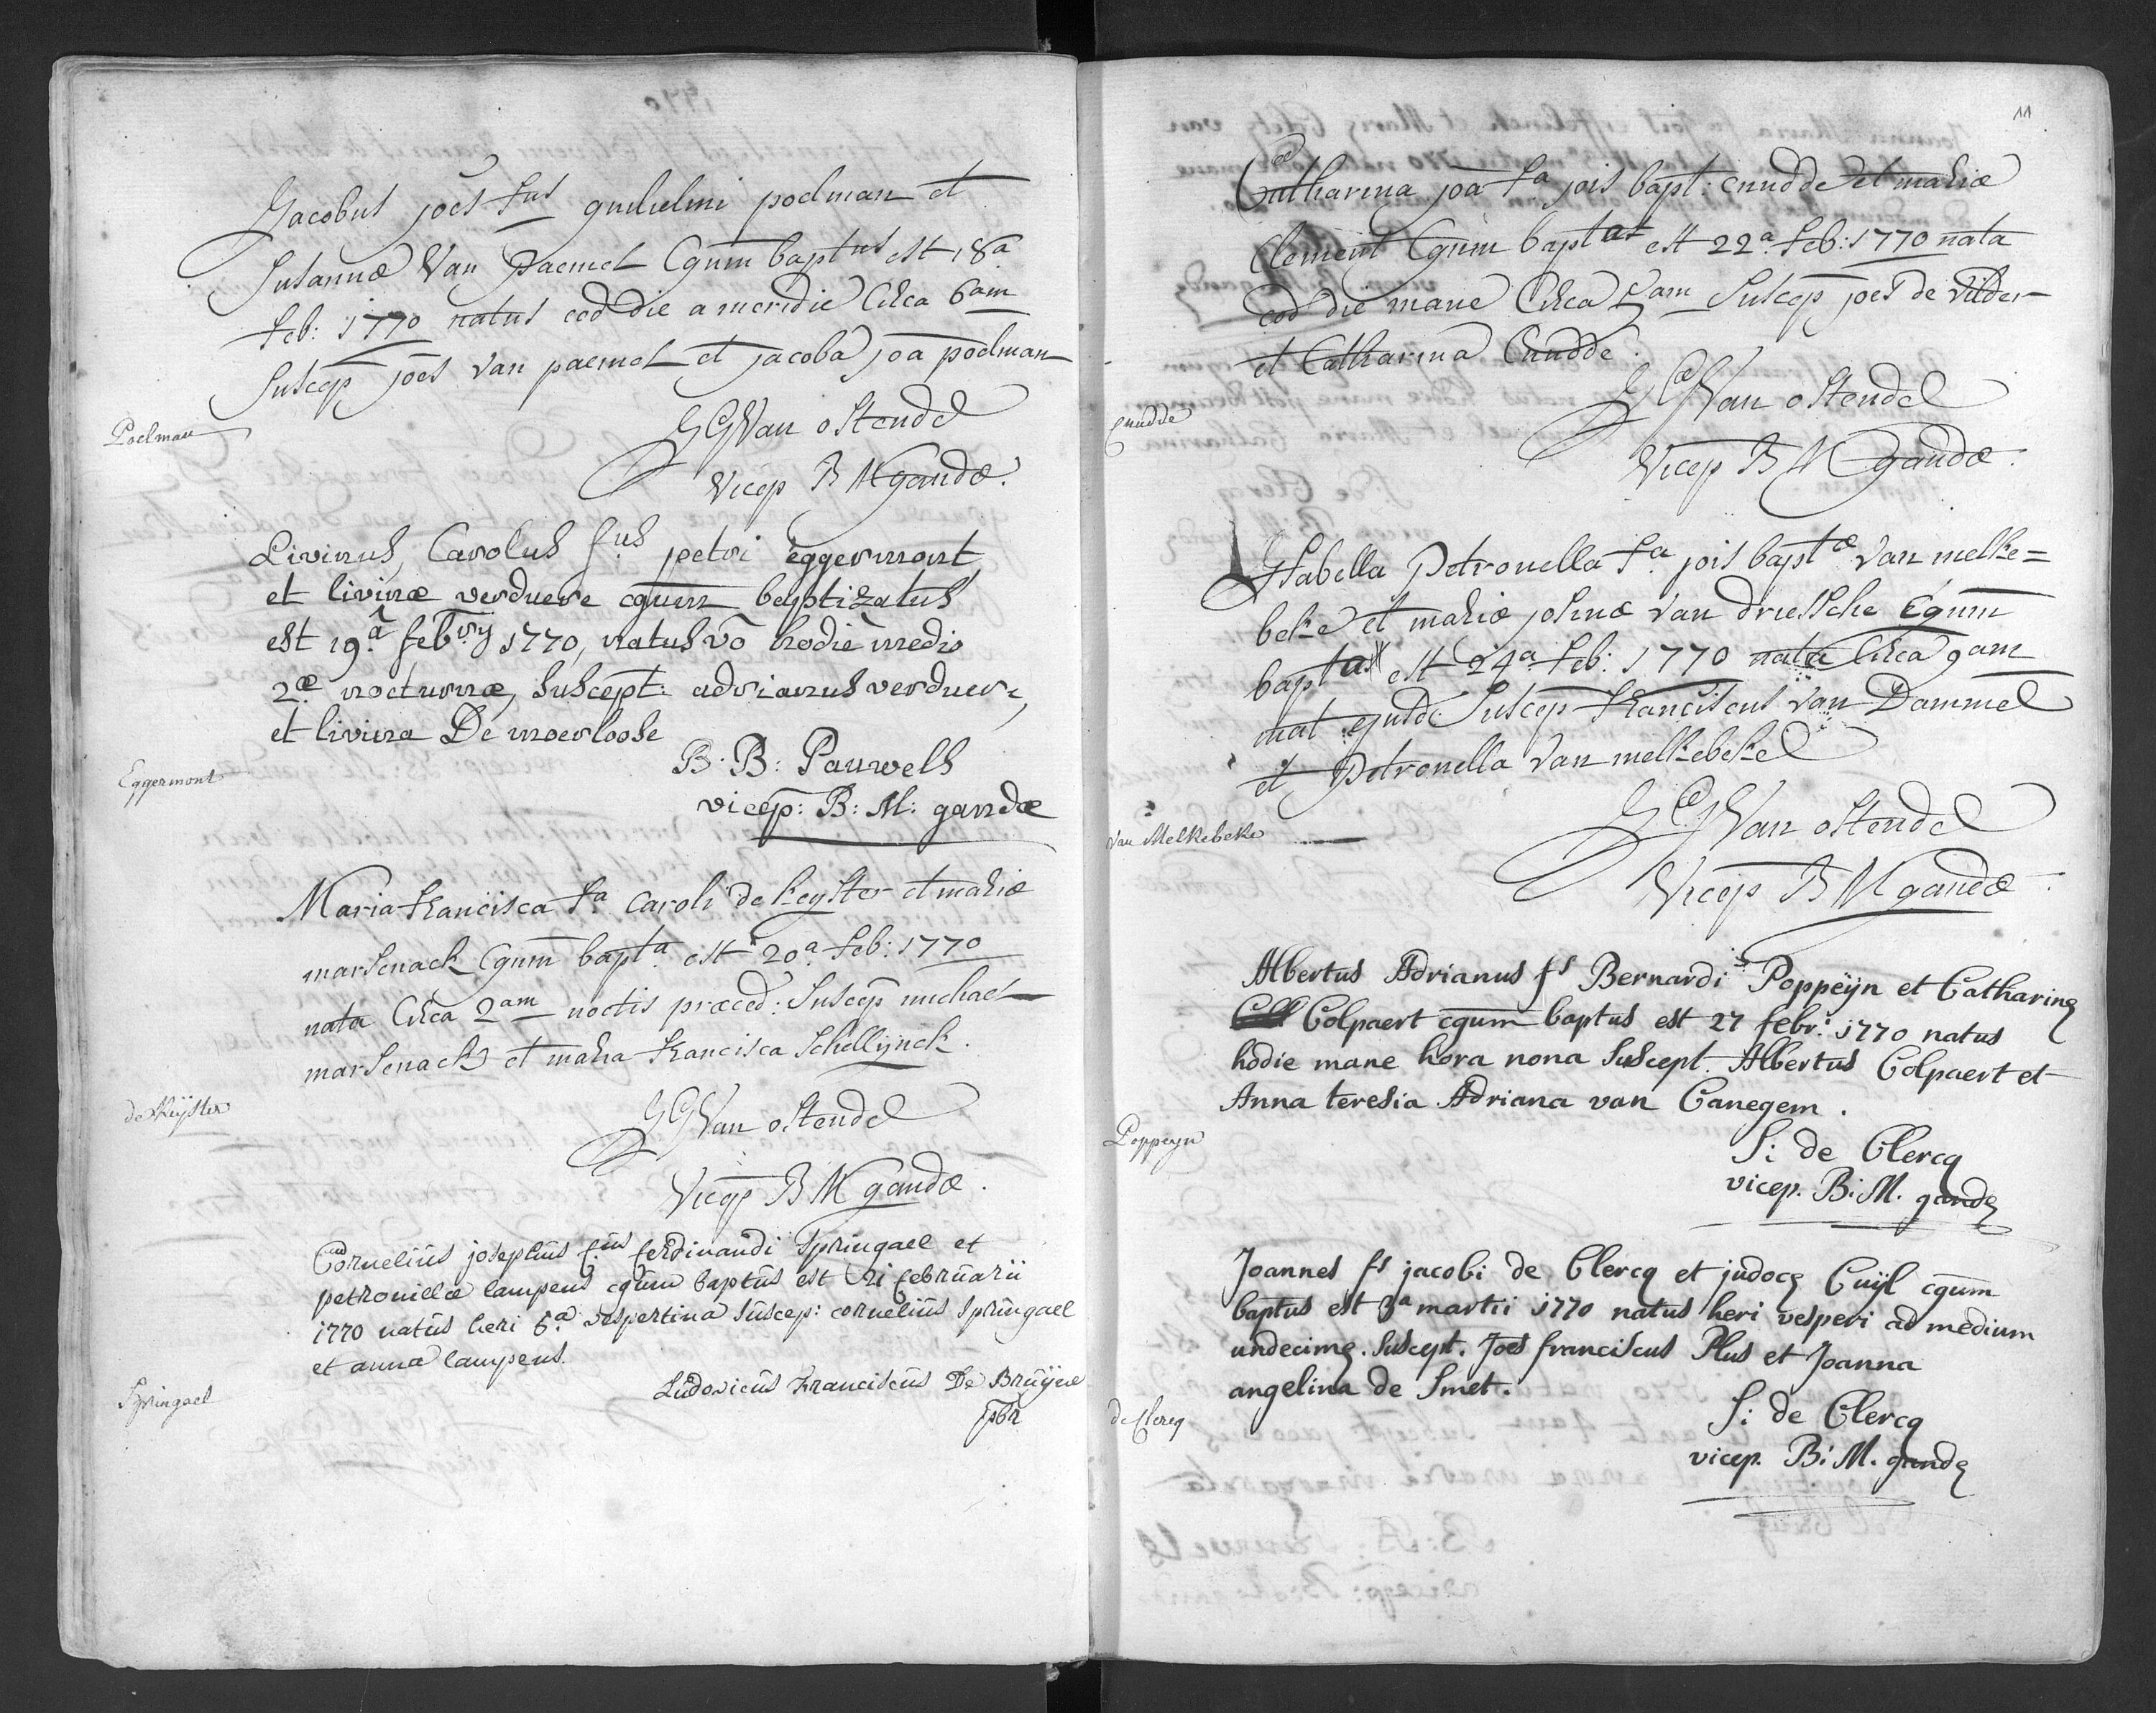 Jacobus joēs fus gulielmi poelman et
Susannæ Van Paemel Cgum baptus est 18a
feb: 1770 natus eod die a meridie Circa 6am
Suscep joēs van paemel et jacoba joa poelman
Poelman
JG Van Ostende
Vicep B M gandæ.
Livinus, Carolus fus petri eggermont
et livinæ verduere cgum baptizatus
est 19â febrij 1770, natus vō hodiè medio
2æ nocturnæ, suscept: adrianus verduere,
et livina De moerloose
Eggermont
B: B: Pauwels
vicep: B: M: gandæ
Maria francisca fa Caroli de keyster et mariæ
marsenack Cgum bapta est 20a feb: 1770
nata Circa 2am noctis præced: Suscep michael
marsenack et maria francisca Schellijnck.
de Keijster
JG Van Ostende
Vicep B M gandæ.
Cornelius josephus fius ferdinandi Springael et
petronillæ lampens cgum baptus est 21 februarii
1770 natus heri 6a vespertina suscep: cornelius Springael
et anna lampens.
Springael
Ludovicus Franciscus De Bruijne
pbr
11
Catharina joa fa jois bapt: cnudde et mariæ
Clement Cgum bapta est 22a feb: 1770 nata
eod die mane Circa 5am Suscep joes de vilder
et Catharina Cnudde.
Cnudde
JG Van Ostende
Vicep B M gandæ.
Isabella Petronella fa jois baptæ van melke=
beke et mariæ josinæ van driessche Cgum
bapta est 24a feb: 1770 nata Circa 9am
mat ejusd: Suscep franciscus van Dammel
et Petronella van melkebeke
Van Melkebeke
JG Van Ostende
Vicep B M gandæ.
Albertus Adrianus fs Bernardi Poppeÿn et Catharinę
Colpaert cgum baptus est 27 febr: 1770 natus
hodie mane hora nona suscept. Albertus Colpaert et
Anna teresia Adriana van Canegem.
Poppeyn
S: de Clercq
vicep. B: M. gandę
Joannes fs jacobi de Clercq et judocę Cuÿl cgum
baptus est 3a martii 1770 natus heri vesperi ad medium
undecimę. suscept. Joes franciscus Plus et Joanna
angelina de Smet.
de Clercq
S: de Clercq
vicep. B: M. gandę